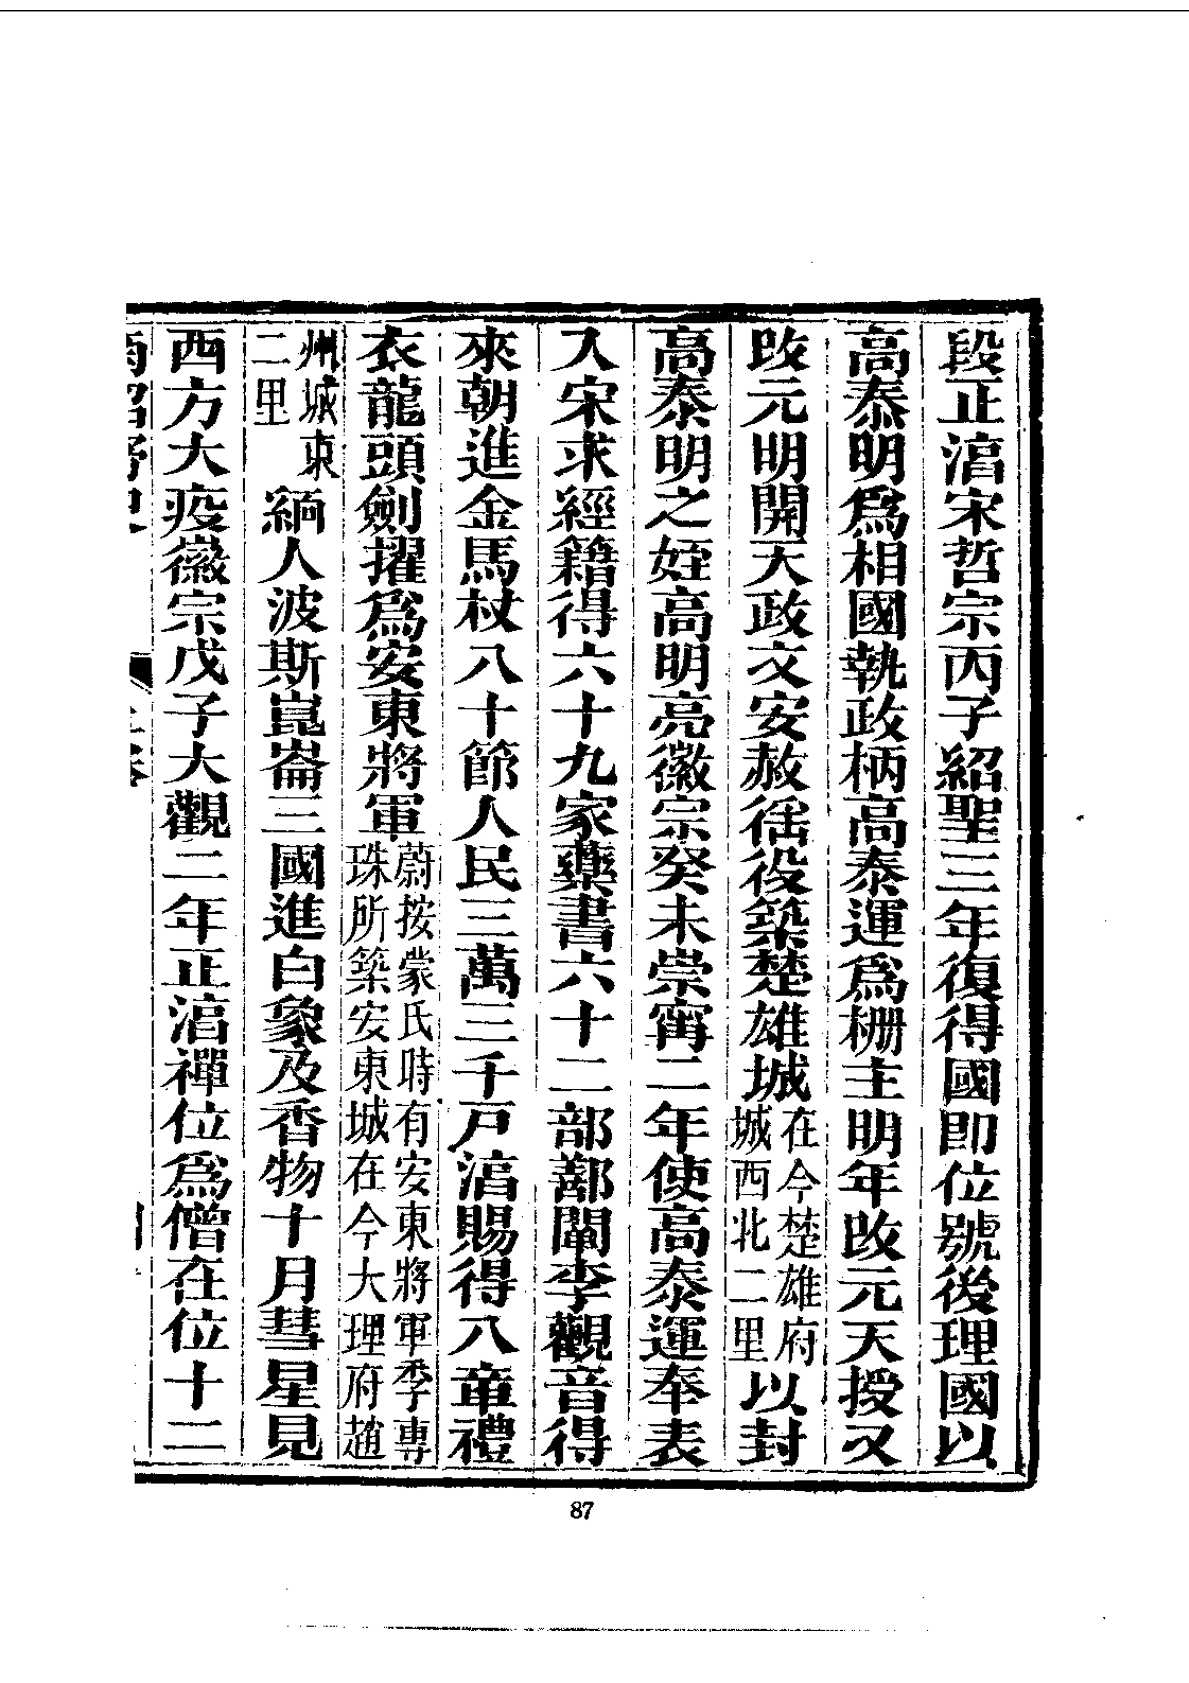 段正淯宋哲宗丙子紹聖三年復得國即位號後理國以
高泰明爲相國執政柄高泰運爲栅主明年改元天授又
改元明開天政文安赦徭役築楚雄城在今楚雄府城西北二里以封
高泰明之姪高明亮徽宗癸未崇寧二年使高泰運奉表
入宋求經籍得六十九家藥書六十二部鄯闡李觀音得
來朝進金馬杖八十節人民三萬三千戸淯賜得八章禮
衣龍頭劍擢爲安東將軍蔚按蒙氏時有安東將軍李專珠所築安東城在今大理府趙
州城東二里緬人波斯崑崙三國進白象及香物十月彗星見
西方大疫徽宗戊子大觀二年正淯禪位爲僧在位十二
87